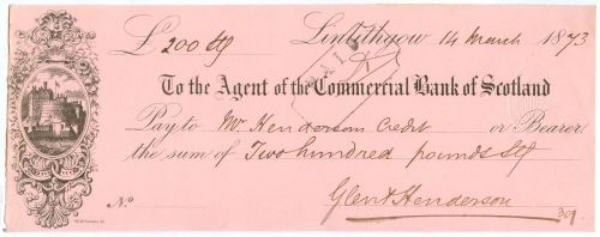 £ 200 Stg Linlithgow 14 March 1873
PAID
To the Agent of the Commercial Bank of Scotland
Pay to Mr Henderson's Credit or Bearer
the sum of Two hundred pounds Stg
No. Glen & Henderson